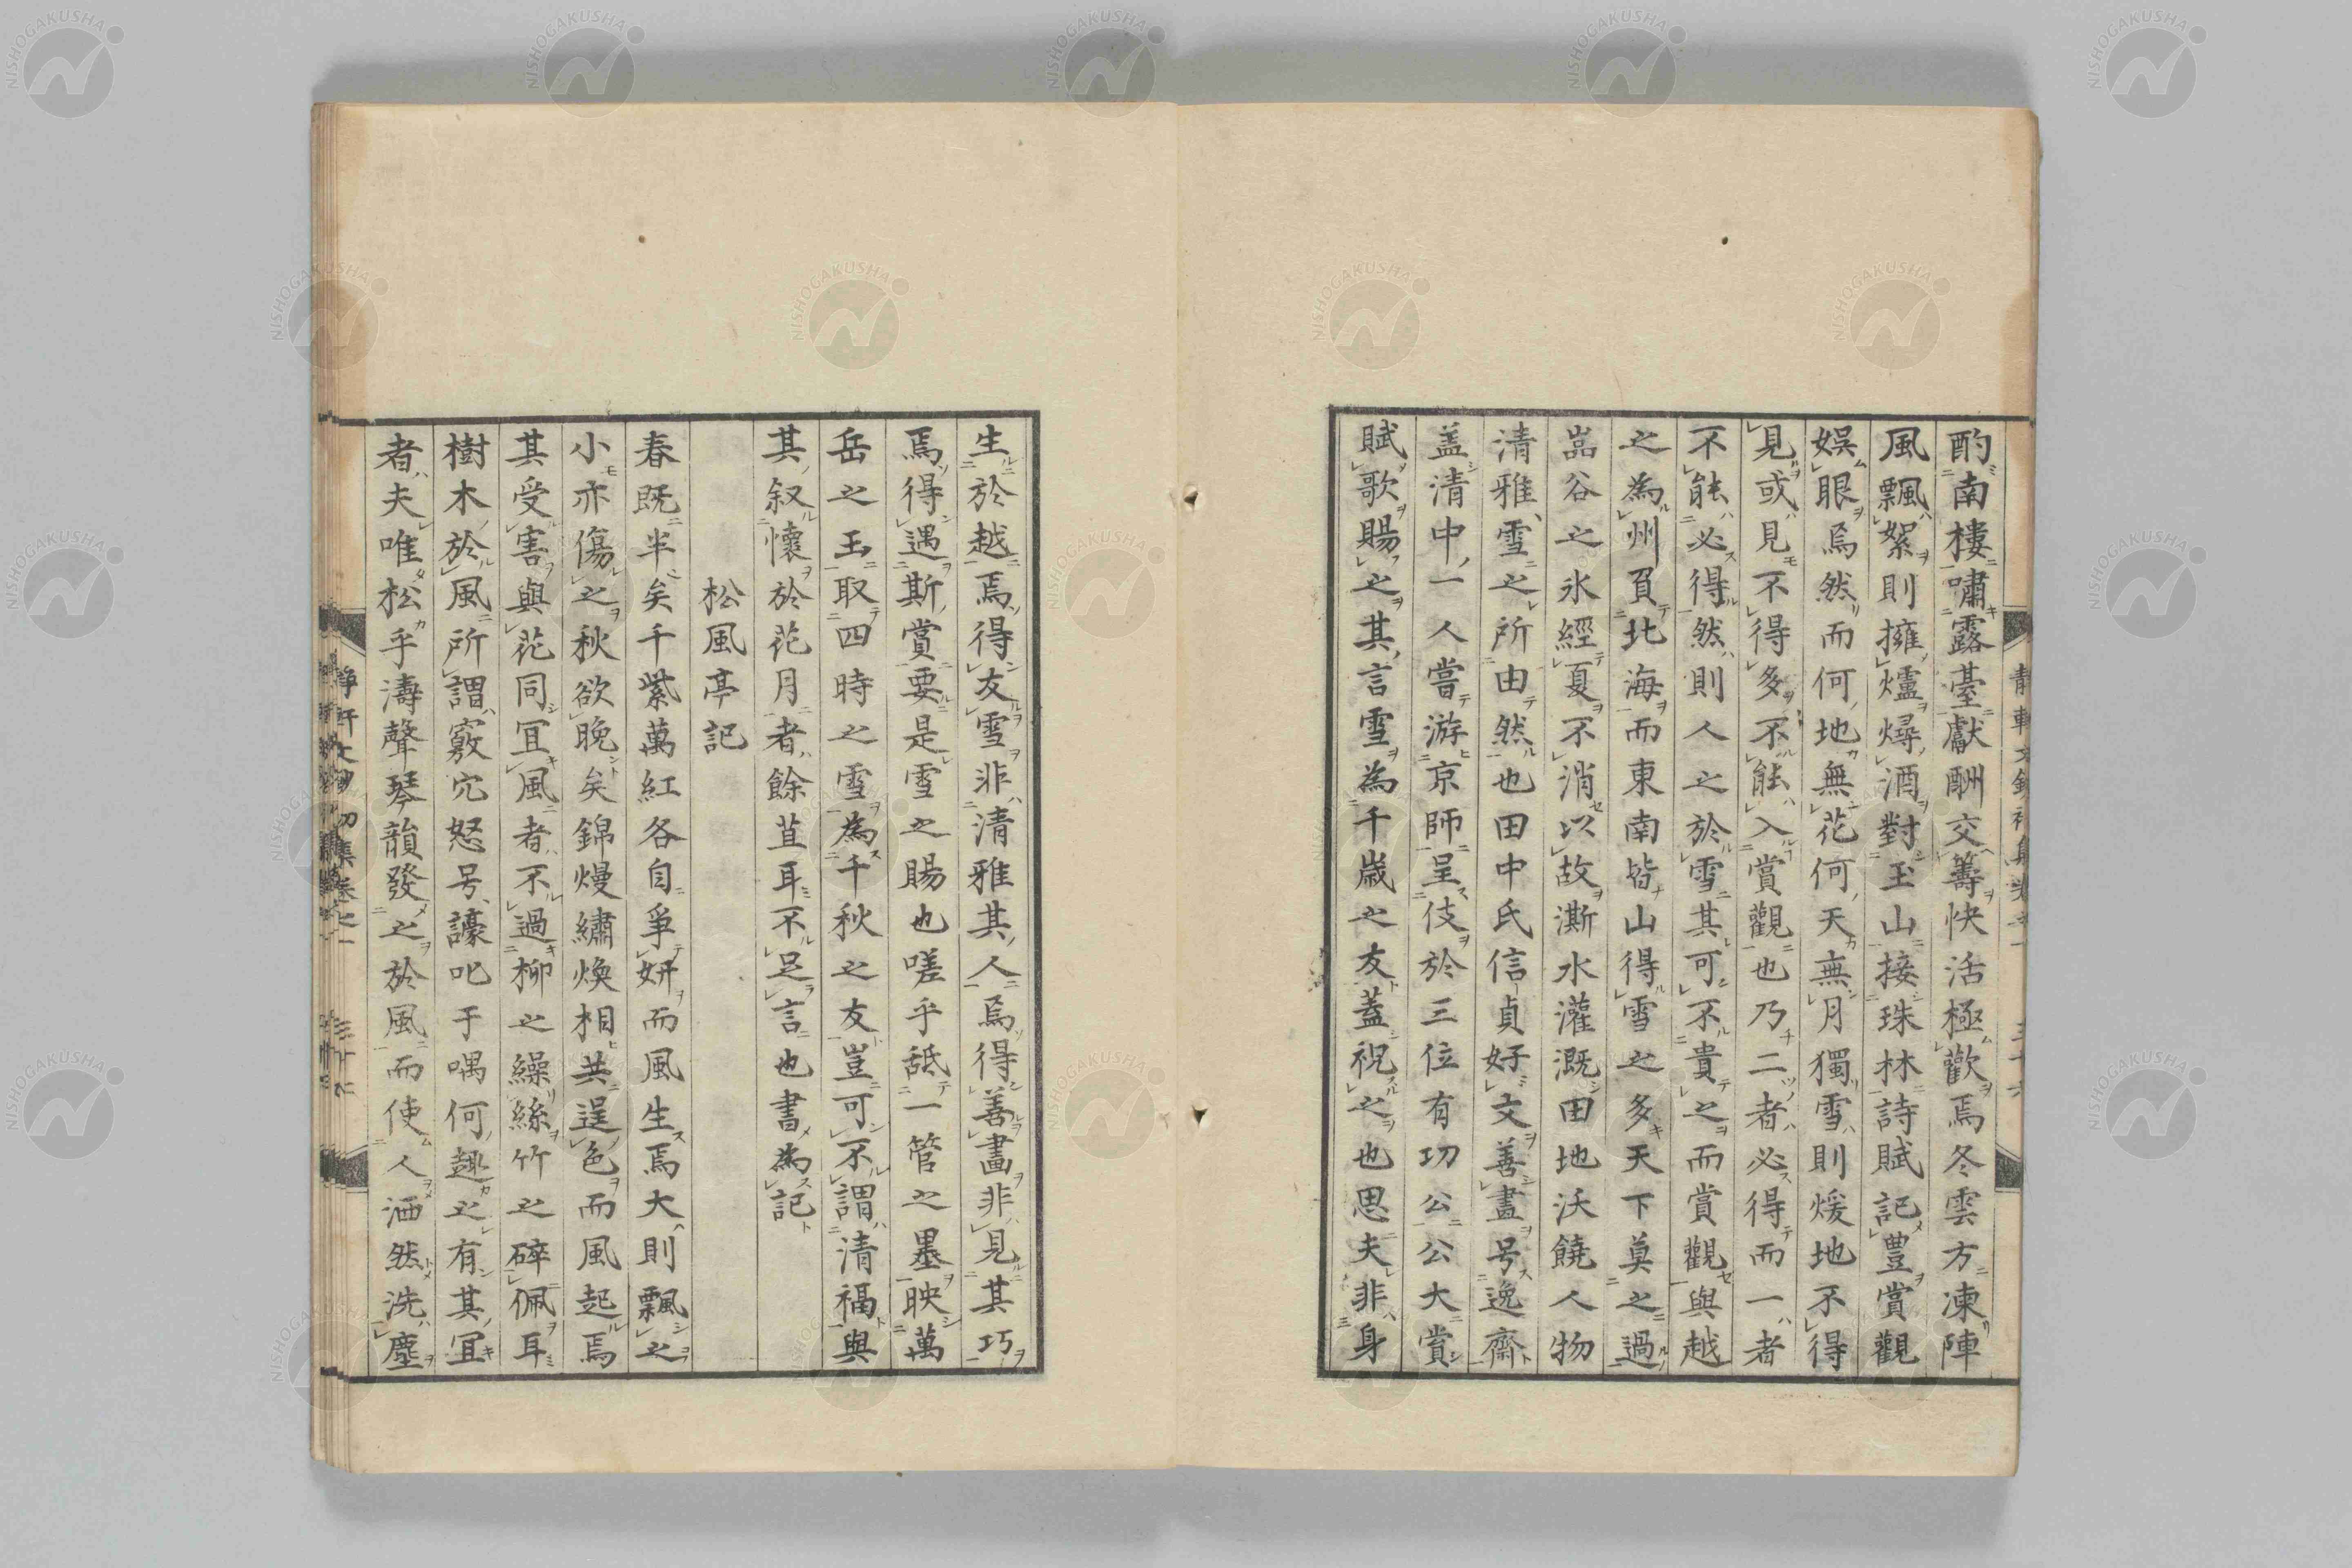 酌南樓嘯露臺獻酬交籌快活極歡焉冬雲方凍陣
風飄絮則擁爐燖酒對玉山接珠林詩賦記豊賞觀
娯眼焉然而何地無花何天無月獨雪則煖地不得
見或見不得多不能入賞觀也乃二者必得而一者
不能必得然則人之於雪其可不貴之而賞觀與越
之為州負北海而東南皆山得雪之多天下莫之過
嵓谷之氷經夏不消以故澌水灌漑田地沃饒人物
清雅雪之所由然也田中氏信貞好文善畫号逸齋
盖清中一人嘗游京師呈伎於三位有功公公大賞
賦歌賜之其言雪為千歳之友蓋祝之也思夫非身
生於越焉得友雪非清雅其人焉得善畫非見其巧
焉得遇斯賞要是雪之賜也嗟乎舐一管之墨映萬
岳之玉取四時之雪為千秋之友豈可不謂清福與
其叙懐於花月者餘苴耳不足言也書為記
松風亭記
春既半矣千紫萬紅各自爭妍而風生焉大則飄之
小亦傷之秋欲晩矣錦熳繡煥相共逞色而風起焉
其受害與花同冝風者不過柳之繰絲竹之碎佩耳
樹木於風所謂竅穴怒号譹叱于喁何趣之有其冝
者夫唯松乎濤聲琴韻發之於風而使人洒然洗塵